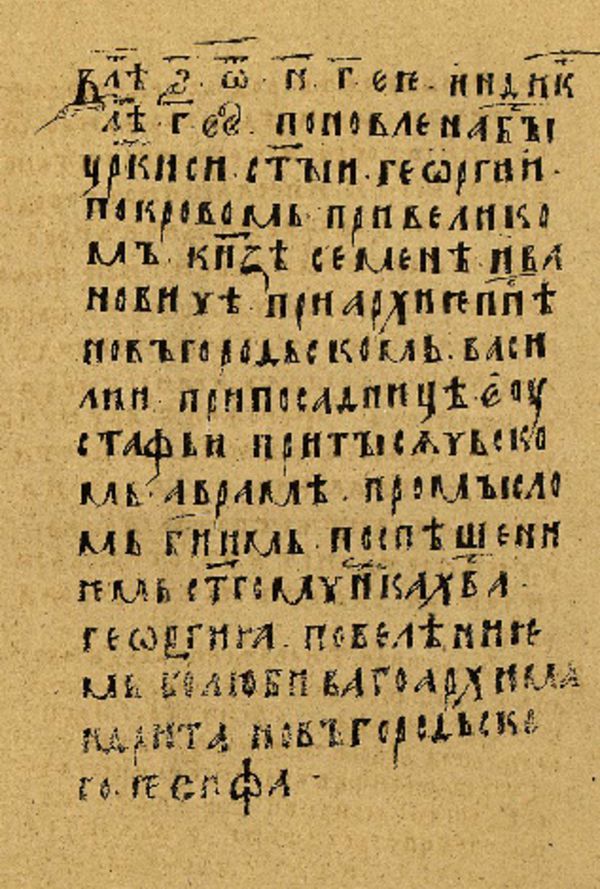 В лѣ ҂ѕ ѿ н г е ин индик
лѣ г ое поновлена бꙑ
црк҃и си ст҃ꙑи георгии
покровомь при велико
мъ кн҃ꙁѣ семенѣ ива
новичѣ при архиѥп҃пѣ
новъгородьскомь васи
лии при посадницѣ ѡоу
стафьи при тꙑсѧчьско
мь аврамѣ промꙑсло
мь б҃иимь поспѣшени
ѥмь ст҃го мч҃нка х҃ва
георгиꙗ повелѣниѥ
мь б҃олюбиваго архима
ндрита новъгородьско
го ѥсифа